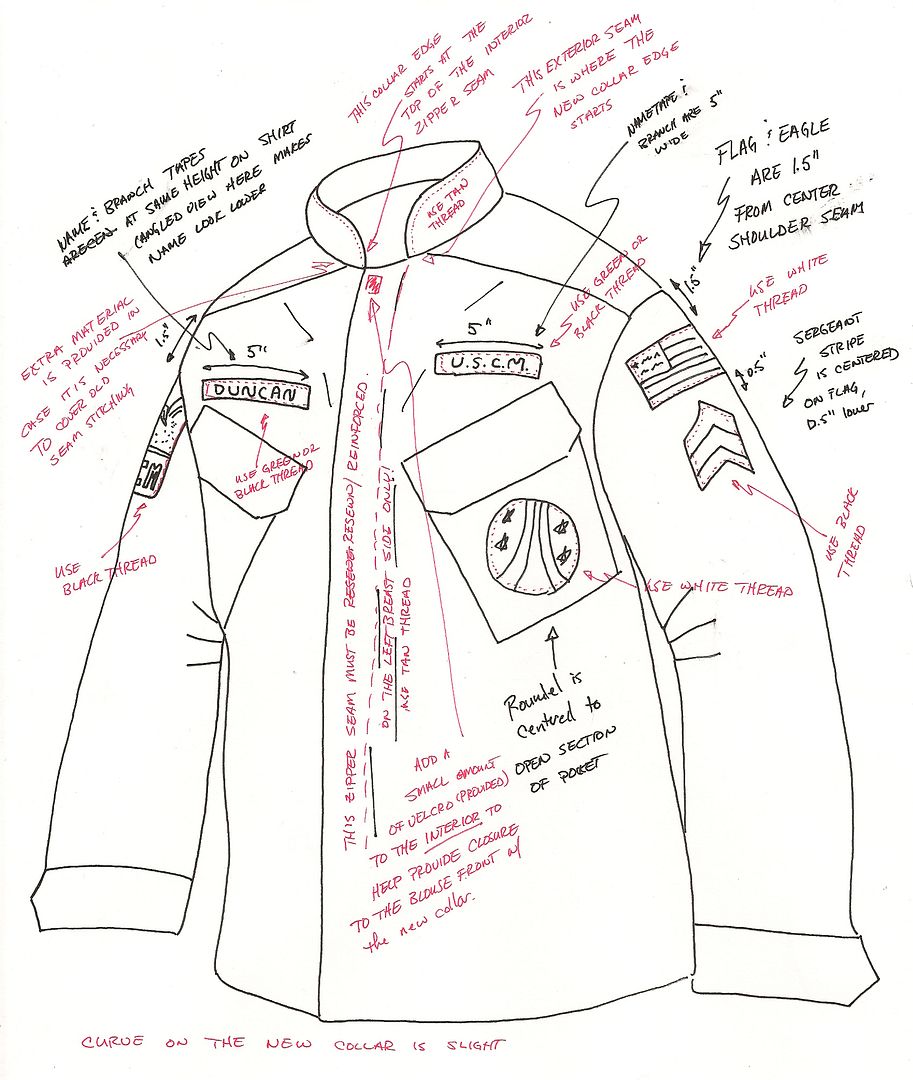 THIS COLLAR EDGE
STARTS AT THE
TOP OF THE INTERIOR
ZIPPER SEAM
THIS EXTERIOR SEAM
IS WHERE THE
NEW COLLAR EDGE
STARTS
NAMETAPE &
BRANCH ARE 5"
WIDE
FLAG & EAGLE
ARE 1.5"
FROM CENTER
SHOULDER SEAM
NAME & BRANCH TAPES
AT SAME HEIGHT ON SHIRT
(ANGLED VIEW HERE MAKES
NAME LOOK LOWER
USE TAN
THREAD
EXTRA MATERIAL
IS PROVIDED IN
CASE IT IS NECESSARY
TO COVER OLD
SEAM STITCHING
1.5"
1.5"
USE GREEN OR
BLACK THREAD
USE WHITE
THREAD
5"
5"
U.S.C.M.
DUNCAN
0.5"
SERGEANT
STRIPE
IS CENTERED
ON FLAG,
0.5" lower
USE GREEN OR
BLACK THREAD
CM
USE
BLACK THREAD
USE BLACK
THREAD
USE WHITE THREAD
THIS ZIPPER SEAM MUST BE RESEWN/REINFORCED.
ON THE LEFT BREAST SIDE ONLY!
USE TAN THREAD
Roundel is
Centered to
OPEN SECTION
OF POCKET
ADD A
SMALL amount
OF VELCRO (PROVIDED)
TO THE INTERIOR TO
HELP PROVIDE CLOSURE
TO THE BLOUSE FRONT w/
the new collar.
CURVE ON THE NEW COLLAR IS SLIGHT